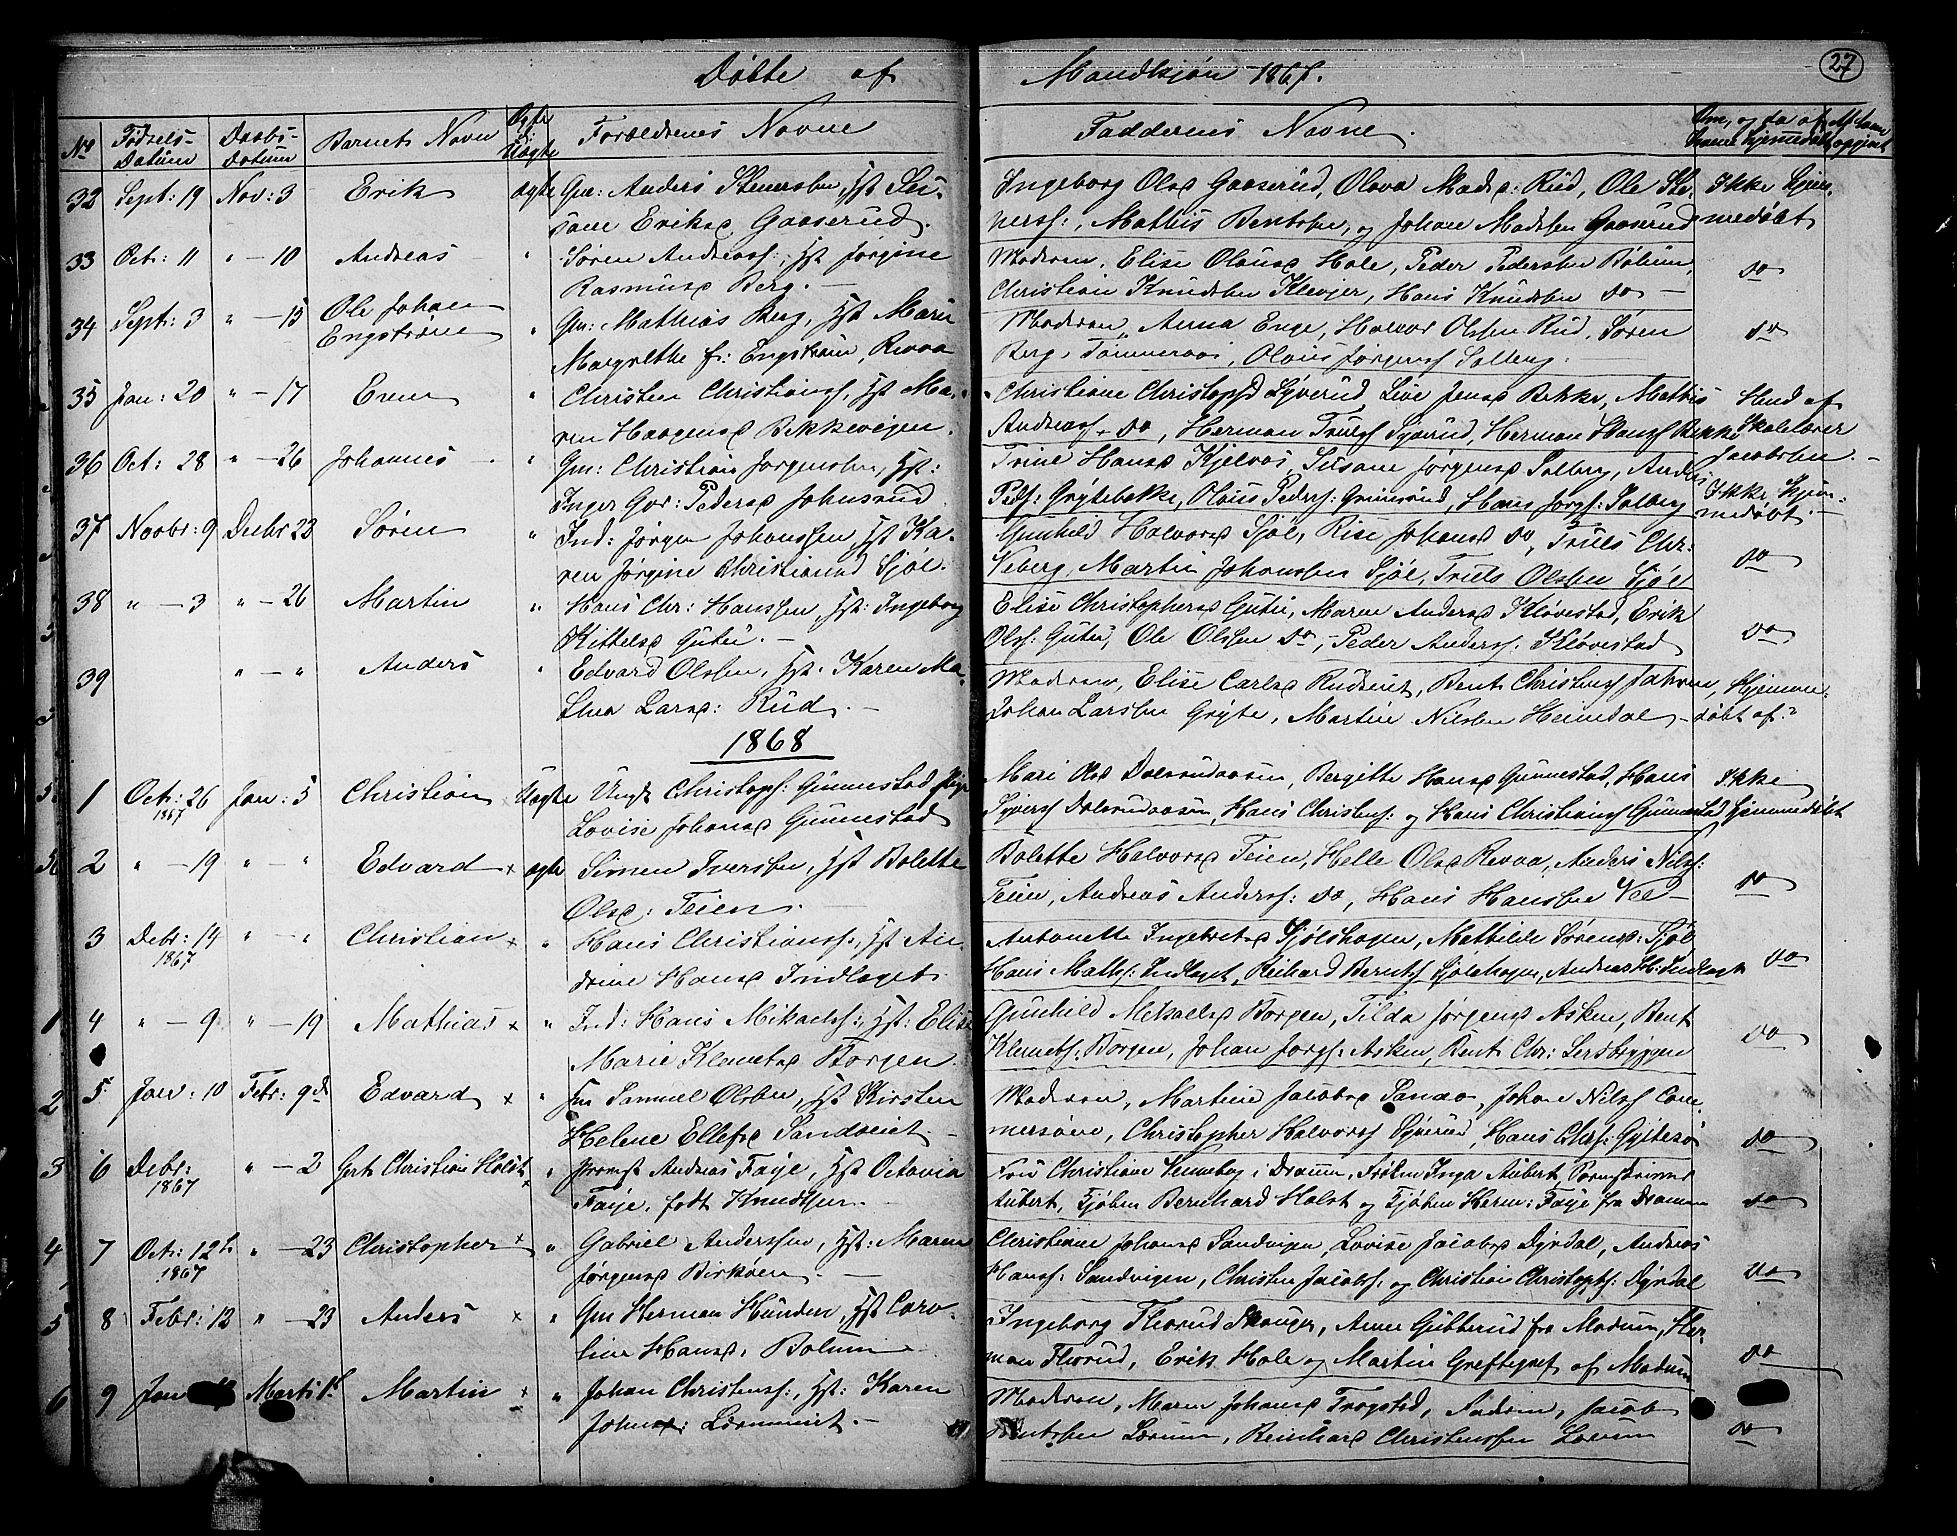 Døbte af Mandkjøn 1867.
27
No Fødsels-Datum Daabs-Datum Barnets Navn Ægte el: Uægte Forældrenes Navne Faddernes Navne
32 Sept: 19 Nov: 3 Erik ægte Gm: Anders Steenersen, Hst Su-
sane Eriksd Gaaserud.
Ingeborg Olsd Gaaserud, Olava Madsd: Rud, Ole Ste-
nerss:, Mathis Bentsen, og Johan Madsen Gaaserud
Ikke hjem-
medøbt
33 Oct: 11 " - 10 Andreas " Søren Andreass:, Hst Jørgine
Rasmusd Berg. -
Moderen, Elise Olausd Hole, Peder Pedersen Bølum,
Christian Knudsen Klevjer, Hans Knudsen do -
do
34 Sept: 3 " - 15 Ole Johan
Engstrøm " Gm: Mathias Berg, Hst Maria
Margrethe f: Engstrøm, Revaa
Moderen, Anna Enge, Halvor Olsen Rud, Søren
Berg Tømmeraas, Olaus Jørgenss Solberg.
do
35 Jan: 20 " - 17 Even " Christen Christianss, Hst Ma-
ren Haagensd Bekkevigen.
Christiane Christophsd Syverud, Live Jensd Bekke, Mathis
Andreass do, Herman Truls Syverud, Herman Hanss Bekke
Hmd af
Skolelærer
Jacobsen. -
36 Oct: 28 " - 26 Johannes " Gm: Christian Jørgensen, Hst:
Inger Gur: Pedersd Johnsrud
Trine Hansd Kjelaas, Susane Jørgensd Solberg, Anders
Peds: Grytebakke, Olaus Peders: Grimsrud, Hans Jørgs: Solberg
Ikke hjem-
medøbt. -
37 Novbr: 9 Decbr 23 Søren " Ind: Jørgen Johanssen, Hst Ka-
ren Jørgine Christiansd Sjøl.
Gunhild Halvorsd Sjøl, Rise Johansd do, Truls Chr:
Viberg, Martin Johanssen Sjøl, Truls Olsen Sjøl
do
38 " - 3 " - 26 Martin " Hans Chr: Hanssen, Hst: Ingeborg
Kittelsd Gutu. -
Elise Christophersd Gutu, Maren Andersd Kløvestad, Erik
Olss: Gutu, Ole Olssen do -, Peder Anderss: Kløvestad
do
39 " - " Anders " Edvard Olssen, Hst: Karen Ma-
thea Larsd: Rud. -
Moderen, Elise Carlsd Rudseiet, Bent Christenss Jahren,
Johan Larsen Gryte, Martin Nilsen Heimdal -
Hjemme-
døbt af?
1868
1 Oct: 26 1867 Jan: 5 Christian Uægte Ungk Christoph: Gunnestad, Pige
Lovise Johansd Gunnestad
Mari Olsd Dalsrudaasen, Bergitte Hansd Gunnestad, Hans
Syverss Dalsrudaasen, Hans Christens: og Hans Christianss Gunnestad
Ikke
hjemmedøbt
2 " - 19 " - " Edvard ægte Simen Iverssen, Hst Bolette
Olsd: Teien.
Bolette Halvorsd Teien, Helle Olsd Revaa, Anders Nilss:
Teien, Andreas Anderss: do, Hans Hanssen Vel -
do
3 Debr: 14 1867 " - " Christian " Hans Christianss, Hst An-
drine Hansd Indlaget.
Antonette Ingebretsd Sjølshagen, Mathilde Sørensd: Sjøl
Hans Maths: Indlaget, Reihard Berntss Sjølshagen, Andreas H: Indlaget
do
1 4 " - 9 " - 19 Mathias " Ind: Hans Mikaels:, Hst: Elise
Marie Klemetsd Borgen
Gunhild Mikaelsd Borgen, Tilda Jørgensd Asken, Bent
Klemets: Borgen, Johan Jørgs: Asken, Bent Chr: Lersbryggen
do
2 5 Jan: 10 Febr: 9de Edvard " Gm Samuel Olsen, Hst Kirsten
Helene Ellefsd Sandseiet. -
Moderen, Martine Jacobsd Sando, Johan Nilss Com-
mersøen, Christopher Halvorss Syverud, Hans Chrs: Gyltesø
do
3 6 Debr: 1867 " - 2 Christian Holst " Andreas Faye, Hst Octavia
Faye, født Knudssen -
Fru Christiane i Dramm, Frøken Inga Aubert,
Aubert, Kjøbm Bernhard Holst og Kjøbm Herm: Faye fra Drammen
do
4 7 Oct: 12te 1867 " - 23 Christopher " Gabriel Anderssen, Hst: Maren
Jørgensd Birkøen. -
Christiane Johansd Sandvigen, Lovise Jacobsd Dyrdal, Andreas
Hanss: Sandvigen, Christen Jacobs: og Christian Christophs: Dyrdal
do
5 8 Febr: 12 " - 23 Anders " Gm Herman Hansen, Hst Caro-
line Hansd, Bølum -
Ingeborg Thorud Skouger, Anne Gubberud fra Modum, Her-
man Thorud, Erik Hole og Martin Greftegref af Modum
do
6 9 Jan Marts 1ste Martin " Johan Christenss:, Hst: Karen
Johnsd: Lærumeiet. -
Moderen, Maren Johansd Frogstad, Jacob
Bentssen Lærum, Reinhard Christenssen Lærum
do